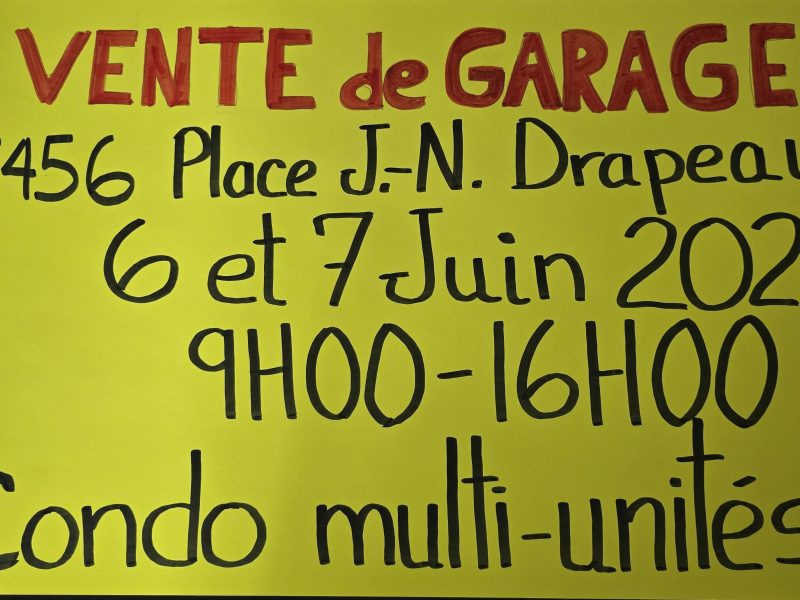 VENTE de GARAGE
456 Place J.-N. Drapeau
6 et 7 Juin 202
9H00-16H00
Condo multi-unités